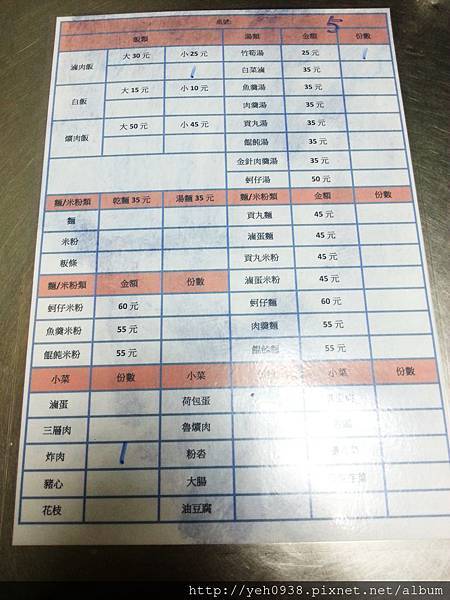 桌號: 5
飯類 湯類 金額 份數
滷肉飯 大 30 元 小 25 元 竹筍湯 25 元 1
1 白菜滷 35 元
白飯 大 15 元 小 10 元 魚羹湯 35 元
肉羹湯 35 元
爌肉飯 大 50 元 小 45 元 貢丸湯 35 元
餛飩湯 35 元
金針肉羹湯 35 元
蚵仔湯 50 元
麵/米粉類 乾麵 35 元 湯麵 35 元 麵/米粉類 金額 份數
麵 貢丸麵 45 元
米粉 滷蛋麵 45 元
粄條 貢丸米粉 45 元
麵/米粉類 金額 份數 滷蛋米粉 45 元
蚵仔米粉 60 元 蚵仔麵 60 元
魚羹米粉 55 元 肉羹麵 55 元
餛飩米粉 55 元 餛飩麵 55 元
小菜 份數 小菜 小菜 份數
滷蛋 荷包蛋
三層肉 魯爌肉
炸肉 1 粉呇
豬心 大腸
花枝 油豆腐
http://yeh0938.pixnet.net/album